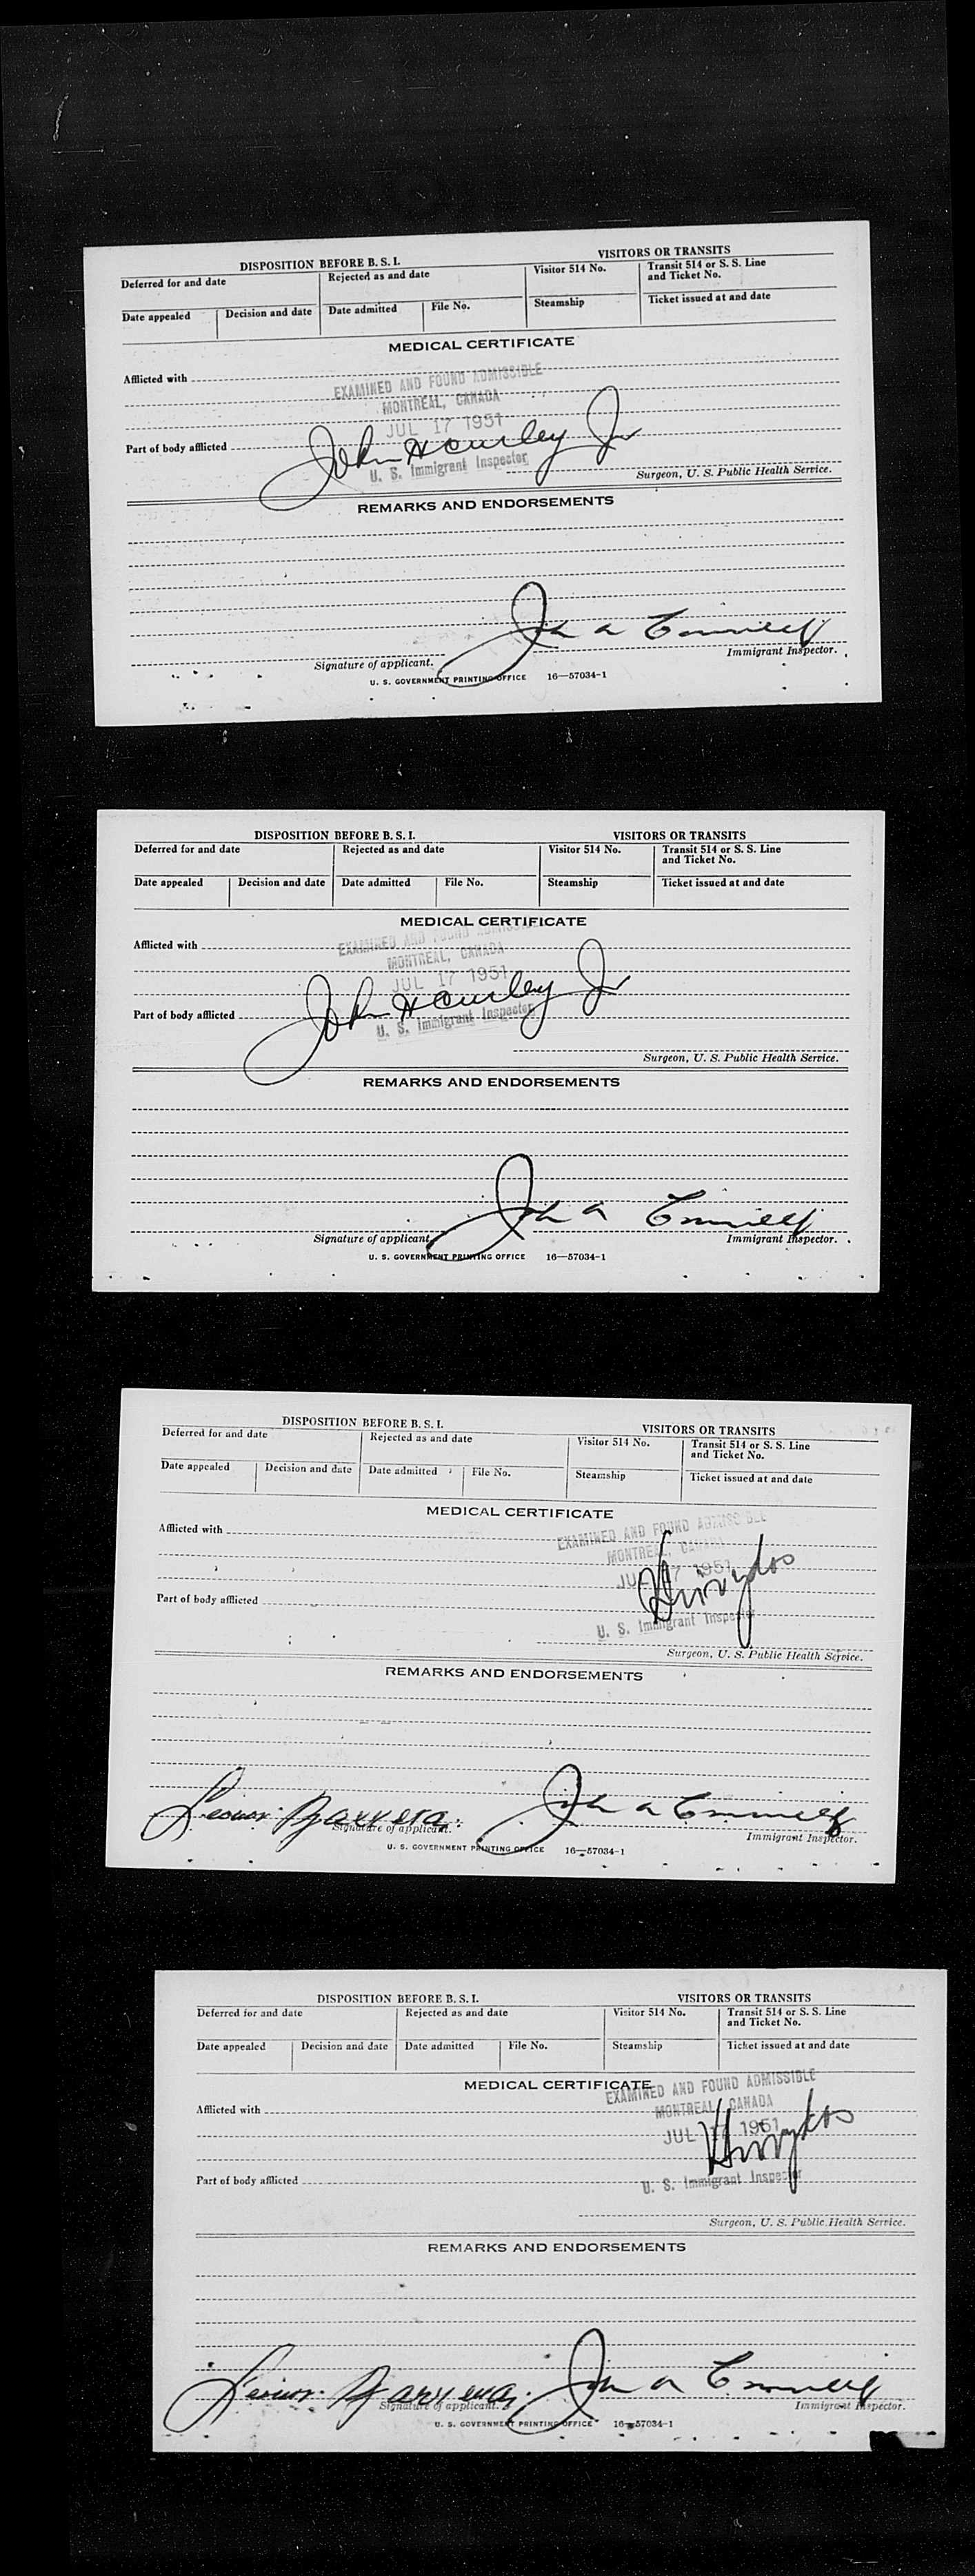 DISPOSITION BEFORE B. S. I. VISITORS OR TRANSITS
Deferred for and date Rejected as and date Visitor 514 No. Transit 514 or S. S. Line and Ticket No.
Date appealed Decision and date Date admitted File No. Steamship Ticket issued at and date
MEDICAL CERTIFICATE
Afflicted with
EXAMINED AND FOUND ADMISSIBLE
MONTREAL, CANADA
JUL 17 1951
Part of body afflicted John H Curley Jr
U. S. Immigrant Inspector
Surgeon, U. S. Public Health Service.
REMARKS AND ENDORSEMENTS
John A
Signature of applicant. Immigrant Inspector.
U. S. GOVERNMENT PRINTING OFFICE 16—57034-1
DISPOSITION BEFORE B. S. I. VISITORS OR TRANSITS
Deferred for and date Rejected as and date Visitor 514 No. Transit 514 or S. S. Line and Ticket No.
Date appealed Decision and date Date admitted File No. Steamship Ticket issued at and date
MEDICAL CERTIFICATE
Afflicted with
EXAMINED AND FOUND ADMISSIBLE
MONTREAL, CANADA
JUL 17 1951
Part of body afflicted John H Curley Jr
U. S. Immigrant Inspector
Surgeon, U. S. Public Health Service.
REMARKS AND ENDORSEMENTS
John A
Signature of applicant. Immigrant Inspector.
U. S. GOVERNMENT PRINTING OFFICE 16—57034-1
DISPOSITION BEFORE B. S. I. VISITORS OR TRANSITS
Deferred for and date Rejected as and date Visitor 514 No. Transit 514 or S. S. Line and Ticket No.
Date appealed Decision and date Date admitted File No. Steamship Ticket issued at and date
MEDICAL CERTIFICATE
Afflicted with
EXAMINED AND FOUND ADMISSIBLE
MONTREAL, CANADA
JUL 17 1951
Part of body afflicted
U. S. Immigrant Inspector
Surgeon, U. S. Public Health Service.
REMARKS AND ENDORSEMENTS
Leonor Barrera John A
Signature of applicant. Immigrant Inspector.
U. S. GOVERNMENT PRINTING OFFICE 16—57034-1
DISPOSITION BEFORE B. S. I. VISITORS OR TRANSITS
Deferred for and date Rejected as and date Visitor 514 No. Transit 514 or S. S. Line and Ticket No.
Date appealed Decision and date Date admitted File No. Steamship Ticket issued at and date
MEDICAL CERTIFICATE
EXAMINED AND FOUND ADMISSIBLE
Afflicted with MONTREAL, CANADA
JUL 17 1951
Part of body afflicted
U. S. Immigrant Inspector
Surgeon, U. S. Public Health Service.
REMARKS AND ENDORSEMENTS
Leonor Barrera John A
Signature of applicant. Immigrant Inspector.
U. S. GOVERNMENT PRINTING OFFICE 16—57034-1